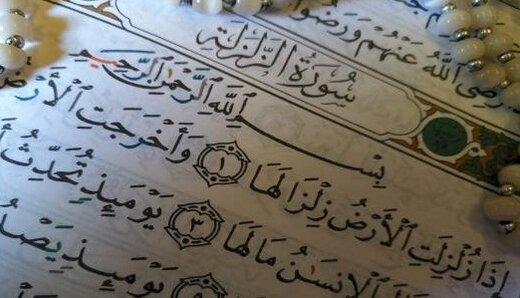 رَّضِىَ ٱللَّهُ عَنْهُمْ وَرَضُوا۟
سُورَةُ الزَّلْزَلَةِ
بِسْمِ ٱللَّهِ ٱلرَّحْمَٰنِ ٱلرَّحِيمِ
إِذَا زُلْزِلَتِ ٱلْأَرْضُ زِلْزَالَهَا ١ وَأَخْرَجَتِ ٱلْأَرْضُ
ٱلْإِنسَٰنُ مَا لَهَا ٣ يَوْمَئِذٍ تُحَدِّثُ
يَوْمَئِذٍ